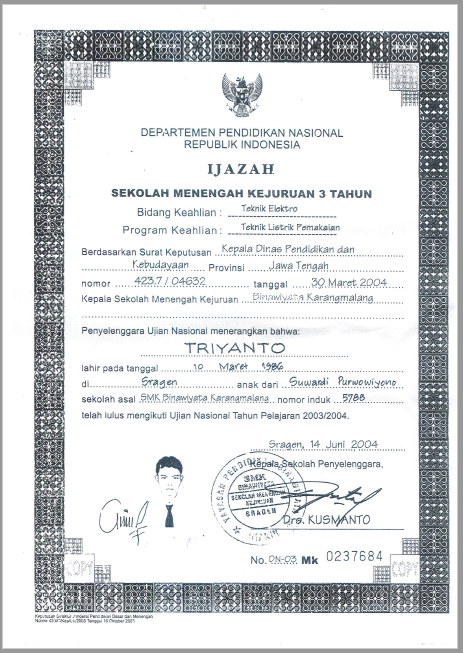 DEPARTEMEN PENDIDIKAN NASIONAL
REPUBLIK INDONESIA
IJAZAH
SEKOLAH MENENGAH KEJURUAN 3 TAHUN
Bidang Keahlian : Teknik Elektro
Program Keahlian : Teknik Listrik Pemakaian
Berdasarkan Surat Keputusan Kepala Dinas Pendidikan dan
Kebudayaan Provinsi Jawa Tengah
nomor 423.7 / 04632 tanggal 30 Maret 2004
Kepala Sekolah Menengah Kejuruan Binawiyata Karangmalang
Penyelenggara Ujian Nasional menerangkan bahwa:
TRIYANTO
lahir pada tanggal 10 Maret 1986
di Sragen anak dari Suwardi Purwowiyono
sekolah asal SMK Binawiyata Karangmalang nomor induk 5788
telah lulus mengikuti Ujian Nasional Tahun Pelajaran 2003/2004.
Sragen, 14 Juni 2004
Kepala Sekolah Penyelenggara,
YAYASAN PENDIDIKAN
SMK
BINAWIYATA
SEKOLAH MENENGAH
KEJURUAN
SRAGEN
Drs. KUSMANTO
No. DN-03 Mk 0237684
COPY
COPY